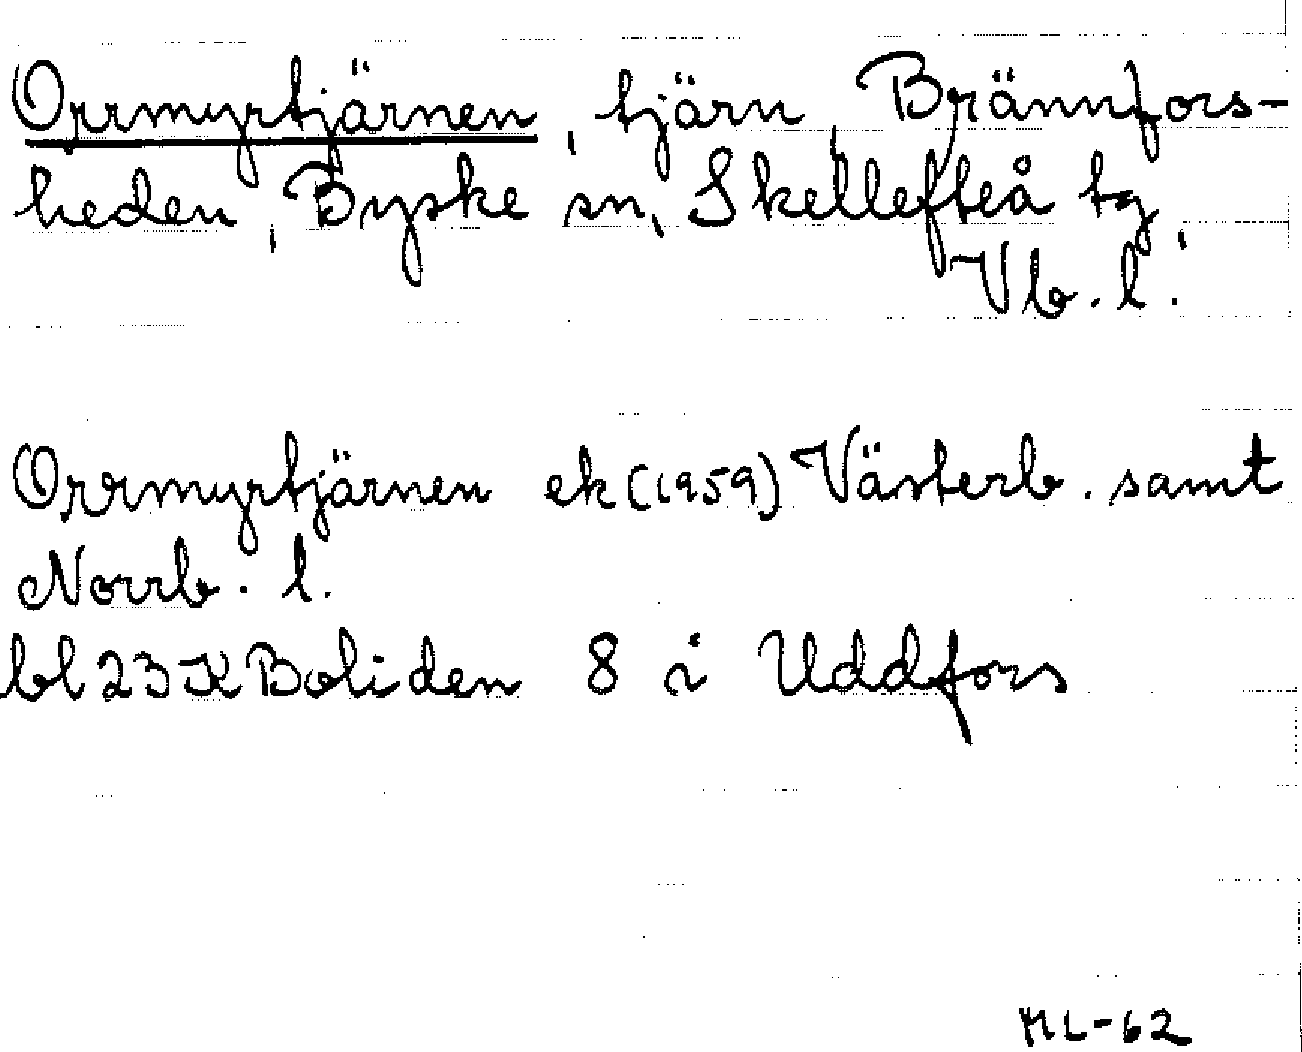 Orrmyrtjärnen, tjärn, Brännfors-
heden, Byske sn, Skellefteå tg,
Vb. l.
Orrmyrtjärnen ek (1959) Västerb. samt
Norrb. l.
bl 23 K Boliden 8 i Uddfors
ML-62